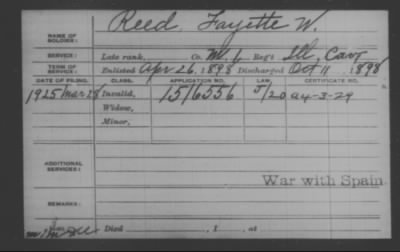 NAME OF SOLDIER: Reed Fayette W.
SERVICE: Late rank, Co. M. 1 Reg't Ill. Cav
TERM OF SERVICE: Enlisted Apr 26, 1898 Discharged Oct 11, 1898
DATE OF FILING. CLASS. APPLICATION NO. LAW. CERTIFICATE NO.
1925 Mar 28 Invalid, 1516556 J/20 a4-3-29
Widow,
Minor,
ADDITIONAL SERVICES:
War with Spain
REMARKS:
Died , 1 , at